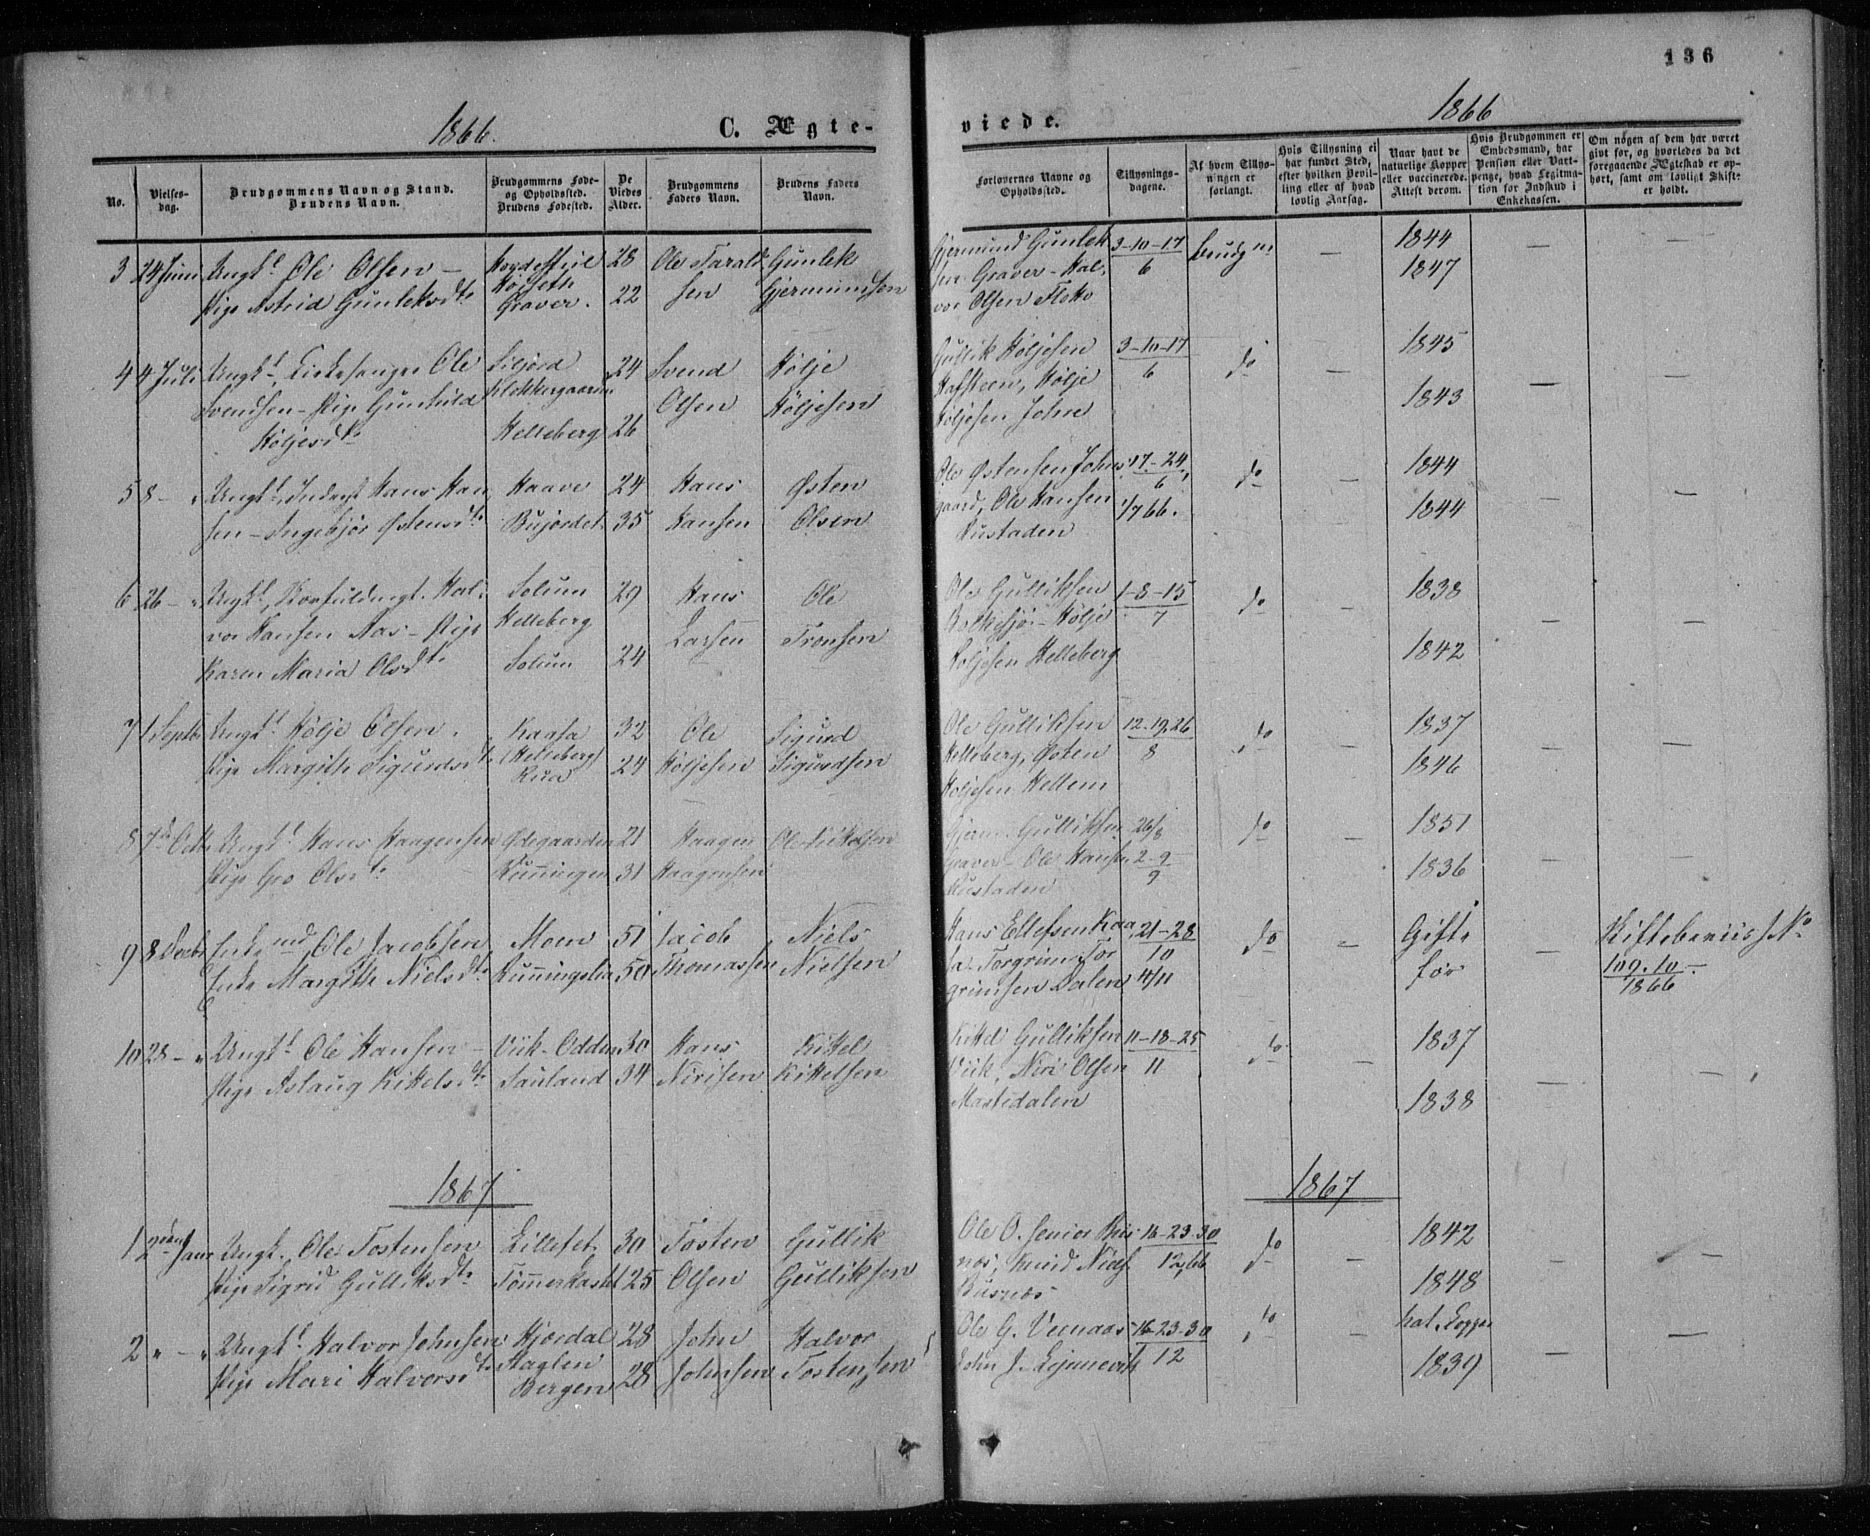 136
1866.
C. Ægte-
viede.
1866
No.
Vielses-
dag.
Brudgommens Navn og Stand.
Brudens Navn.
Brudgommens Føde-
og Opholdssted.
Brudens Fødested.
De
Viedes
Alder.
Brudgommens
Faders Navn.
Brudens Faders
Navn.
Forlovernes Navne og
Opholdssted.
Tillysnings-
dagene.
Af hvem Tillys-
ningen er
forlangt.
Hvis Tillysning ei
har fundet Sted,
efter hvilken Bevil-
ling eller af hvad
lovlig Aarsag.
Naar havt de
naturlige Kopper
eller vaccinerede.
Attest derom.
Hvis Brudgommen er
Embedsmand, har
Pension eller Vart-
penge, hvad Legitima-
tion for Indskud i
Enkekassen.
Om nogen af dem har været
givt før, og hvorledes da det
foregaaende Ægteskab er op-
hørt, samt om lovligt Skifte
er holdt.
3 24 Juni Ungk. Ole Olsen –
Pige Astrid Gunleksdt.
Graver.
28
22
Ole Tarald-
sen
Gunlek
Gjermundsen
Gjermund Gunlek
sen Graver – Hal-
vor Olsen
3-10-17
6
Brudgm
–
1844
1847
–
–
4 4 Juli Ungk. Kirkesanger Ole
Svendsen – Pige Gunhild
Høljesdt.
Siljord
Klokkergaarden
Helleberg
24
26
Svend
Olsen
Hølje
Høljesen
Gullik Høljesen
Hafsteen, Hølje
Høljesen
3-10-17
6
do
–
1845
1843
–
–
5 8 – " Ungk. Hans Han
sen – Ingebjør Østensdt.
Haave
Bujordet
24
35
Hans
Hansen
Østen
Olsen
Ole Østensen Johns
gaard, Ole Hansen
Rustaden
17-24
6
1/7 66.
do
–
1844
1844
–
–
6 26 – " Ungk. Hal-
vor Hansen Aas – Pige
Karen Maria Olsdt.
Solum
Helleberg
Solum
29
24
Hans
Larsen
Ole
Tronsen
Ole Gulliksen
Bolkesjø – Hølje
Holjesen Helleberg
1-8-15
7
do
–
1838
1842
–
–
7 1 Septbr Ungk. Hølje Olsen.
Pige Margithe Sigurdsdt.
Kaasa
(Helleberg)
Rua
32
24
Ole
Høljesen
Sigurd
Sigurdsen
Ole Gulliksen
Helleberg, Østen
Holjesen Hellem
12.19.26
8
do
–
1837
1846
–
–
8 7de Octb Ungk. Hans Haagensen
Pige Gro Olsdt.
Ødegaarden
Rönningen
21
31
Haagen
Haagensen
Ole Kittelsen
Gjerm. Gulliksen
Graver – Ole Hansen
Rustaden
26/8
2-9
9
do
–
1851
1836
–
–
9 8 Decbr Enkemd. Ole Jacobsen
Enke Margithe Nielsdt.
Moen
Runningslia
51
50
Jacob
Thomassen
Niels
Nielsen
Hans Ellefsen Kaa
sa. Torgrim Tor
grimsen Dalen
21-28
10
4/11
do
–
Gifte
før
–
Skiftebeviis No
109.10
1866
10 28 – " Ungk. Ole Hansen –
Pige Aslaug Kittelsdt.
Viik-Odden
Sauland
30
34
Hans
Nirisen
Kittel
Kittelsen
Kittel Gulliksen
Viik, Niri Olsen
Mastedalen
11-18-25
11
do
–
1837
1838
–
–
1867
1867
1 2den Janr Ungk. Ole Tostensen
Pige Sigrid Gulliksdt.
Lilleset
Tömmerkaste
30
25
Tosten
Olsen
Gullik
Gulliksen
Ole O. senior Bus
næs, Knud Niels.
Busnæs
16-23-30
12,66
do
–
1842
1848
–
–
2 " – " Ungk. Halvor Johnsen
Pige Mari Halvorsdt.
Hjærdal
Bergen
28
28
John
Johnsen
Halvor
Tostensen
Ole G. Veenaas
John J.
16-23-30
12
do
–
nat. Kopper
1839
–
–